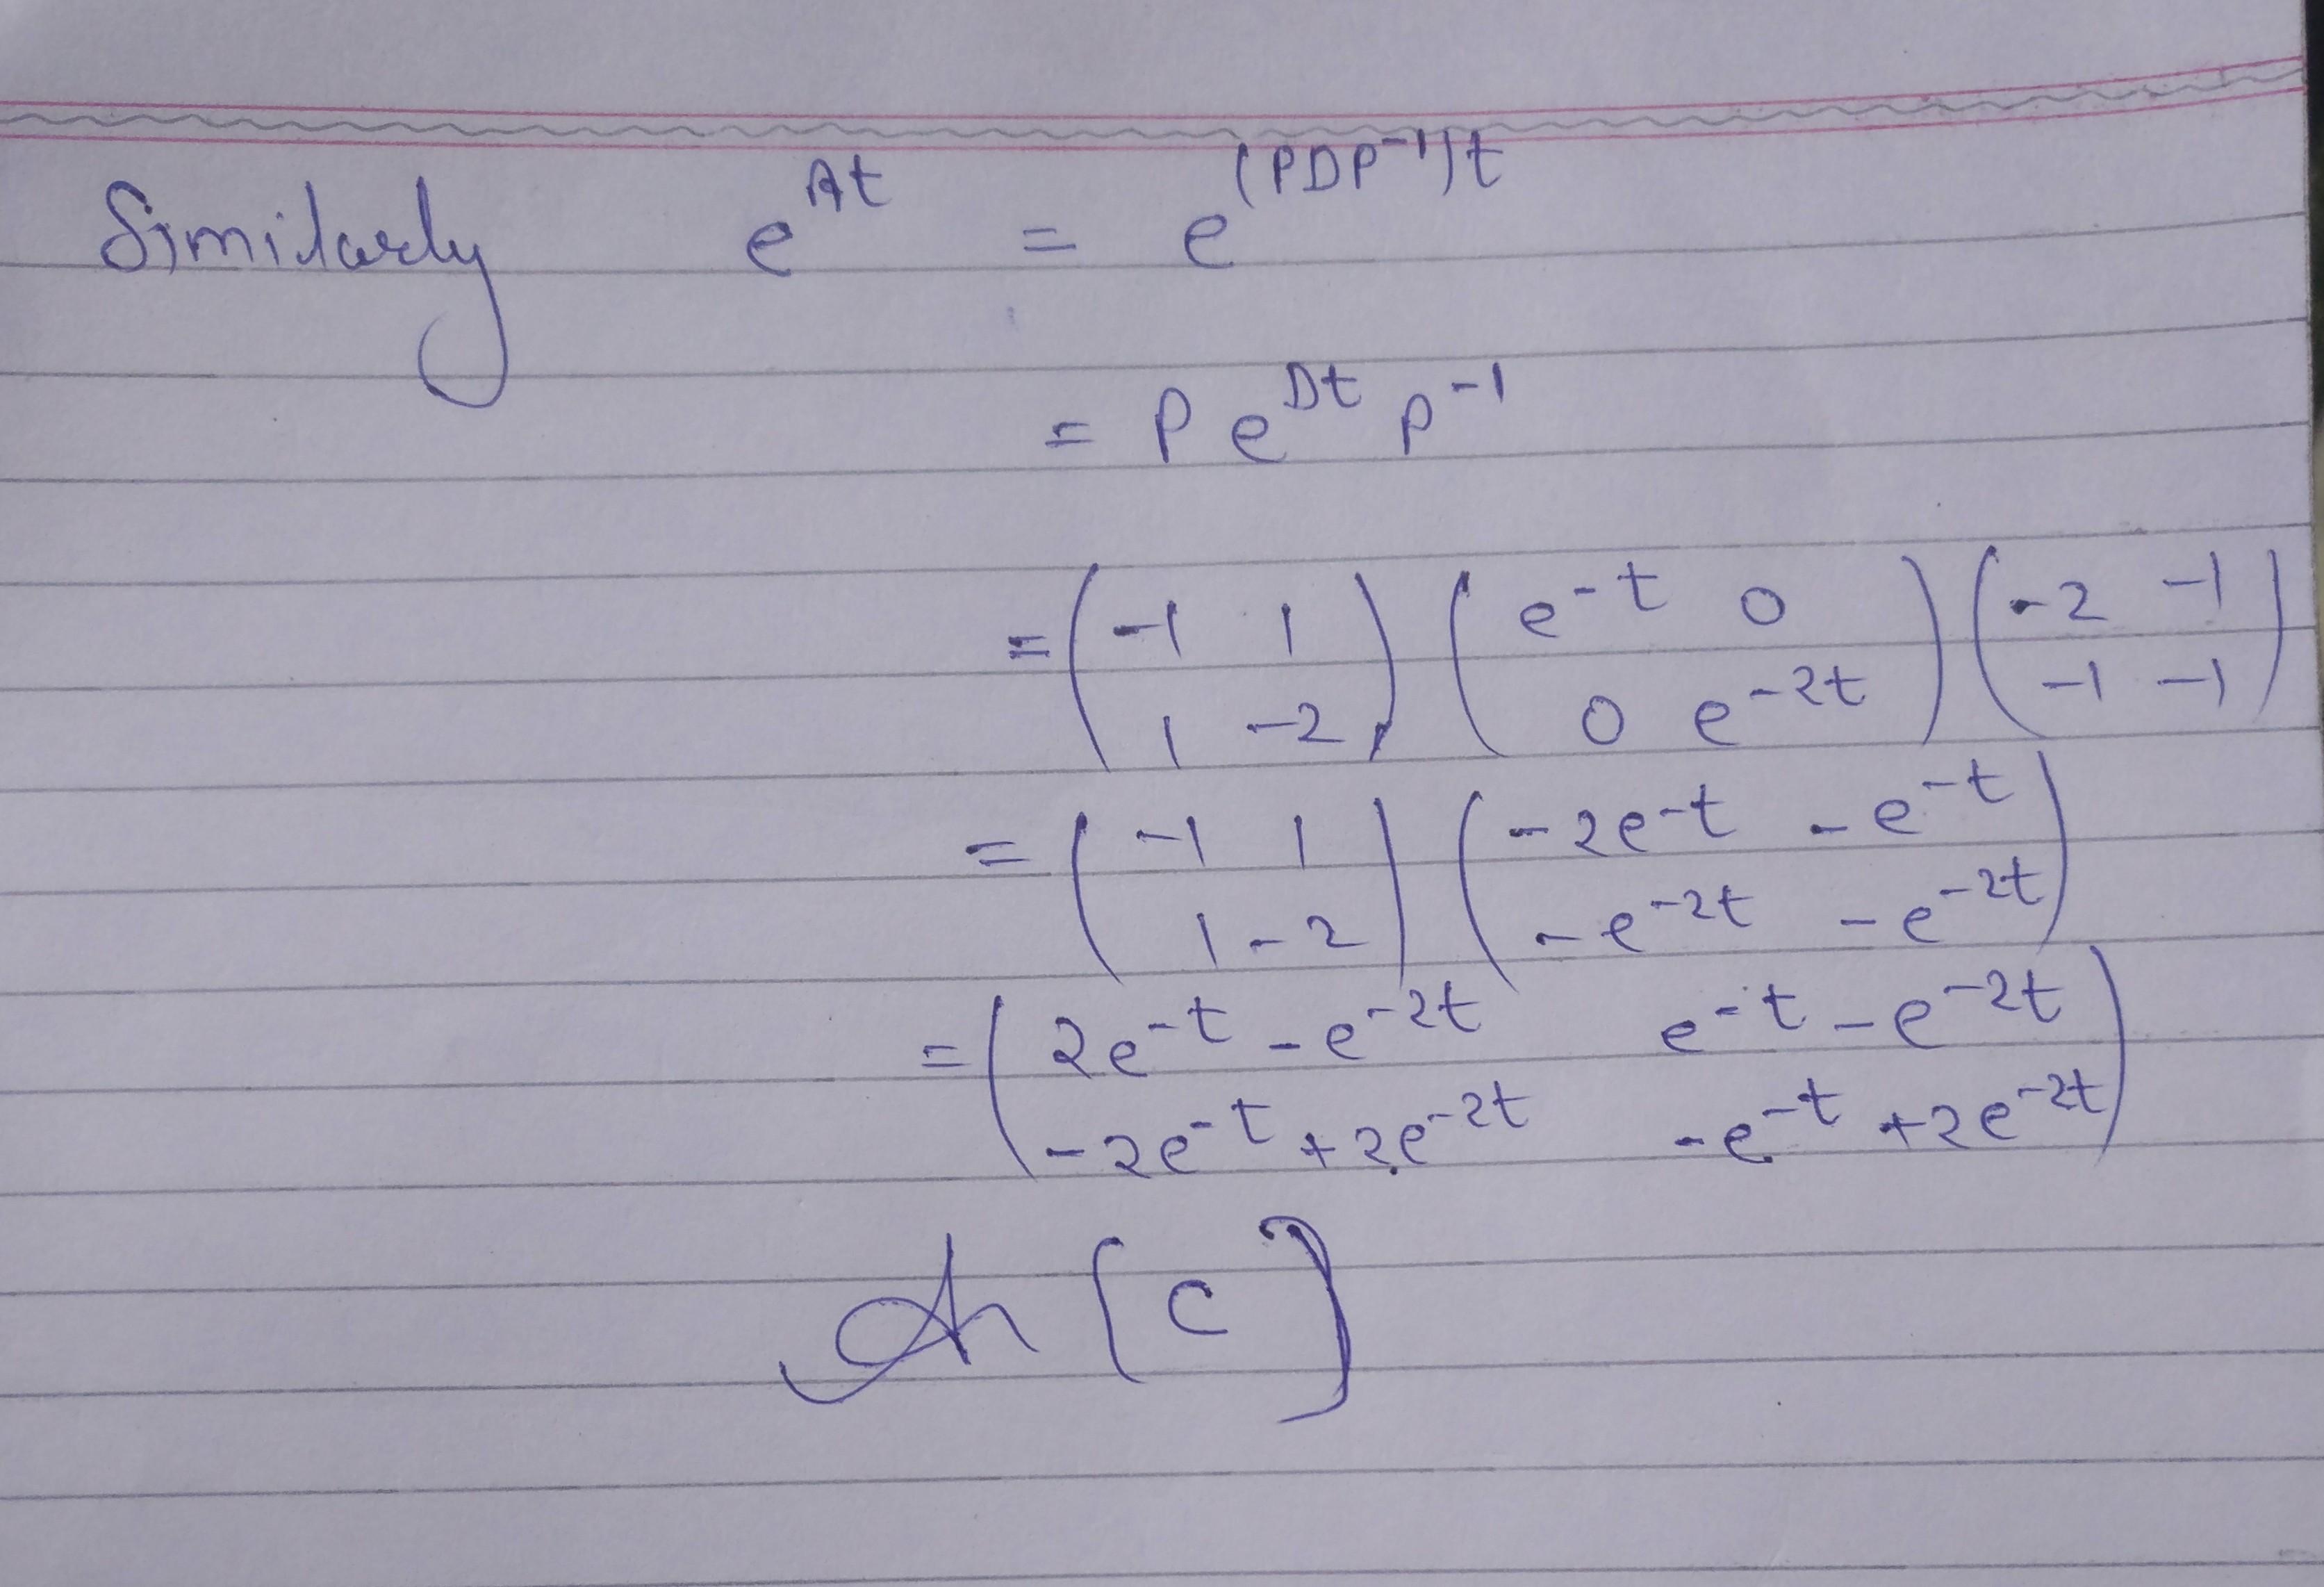 Similarly e^{At} = e^{(PDP^{-1})t}
= P e^{Dt} P^{-1}
= \begin{pmatrix} -1 & 1 \\ 1 & -2 \end{pmatrix} \begin{pmatrix} e^{-t} & 0 \\ 0 & e^{-2t} \end{pmatrix} \begin{pmatrix} -2 & -1 \\ -1 & -1 \end{pmatrix}
= \begin{pmatrix} -1 & 1 \\ 1 & -2 \end{pmatrix} \begin{pmatrix} -2e^{-t} & -e^{-t} \\ -e^{-2t} & -e^{-2t} \end{pmatrix}
= \begin{pmatrix} 2e^{-t} - e^{-2t} & e^{-t} - e^{-2t} \\ -2e^{-t} + 2e^{-2t} & -e^{-t} + 2e^{-2t} \end{pmatrix}
[C]